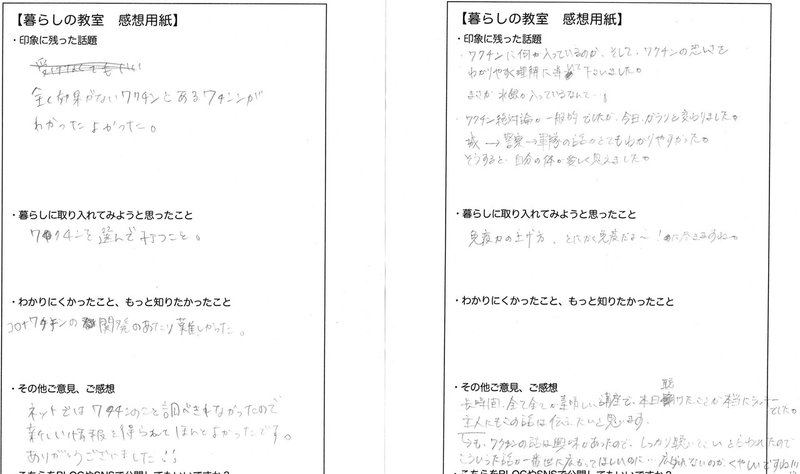 【暮らしの教室　感想用紙】
・印象に残った話題
全く効果がないワクチンとあるワクチンが
わかったよかった。
・暮らしに取り入れてみようと思ったこと
ワクチンを選んで打つこと。
・わかりにくかったこと、もっと知りたかったこと
コロナワクチンの開発のあたり難しかった。
・その他ご意見、ご感想
ネットではワクチンのこと調べきれなかったので
新しい情報を得られてほんとよかったです。
ありがとうございました!!
【暮らしの教室　感想用紙】
・印象に残った話題
・ワクチンに何が入っているのか、そして、ワクチンの恐しさを
わかりやすく理解に 下さいました。
まさか水銀が入っているなんて…。
・ワクチン絶対論が一般的でしたが、今日、ガラリと変わりました。
城→警察→軍隊の話がとてもわかりやすかった。
そうすると、自分の体が愛しく思えました。
・暮らしに取り入れてみようと思ったこと
免疫力の上げ方、とにかく免疫だな〜!
・わかりにくかったこと、もっと知りたかったこと
・その他ご意見、ご感想
長時間、全て全てが素晴しい講座で、本日聴けたことが本当にラッキーでした。
主人にもこの話は伝えたいと思います。
ワクチンの話は興味があったので、しっかり聴いてこいと言われたので
こういった話が一番世に広がってほしいのに…広がらないのが、くやしいですね!!!